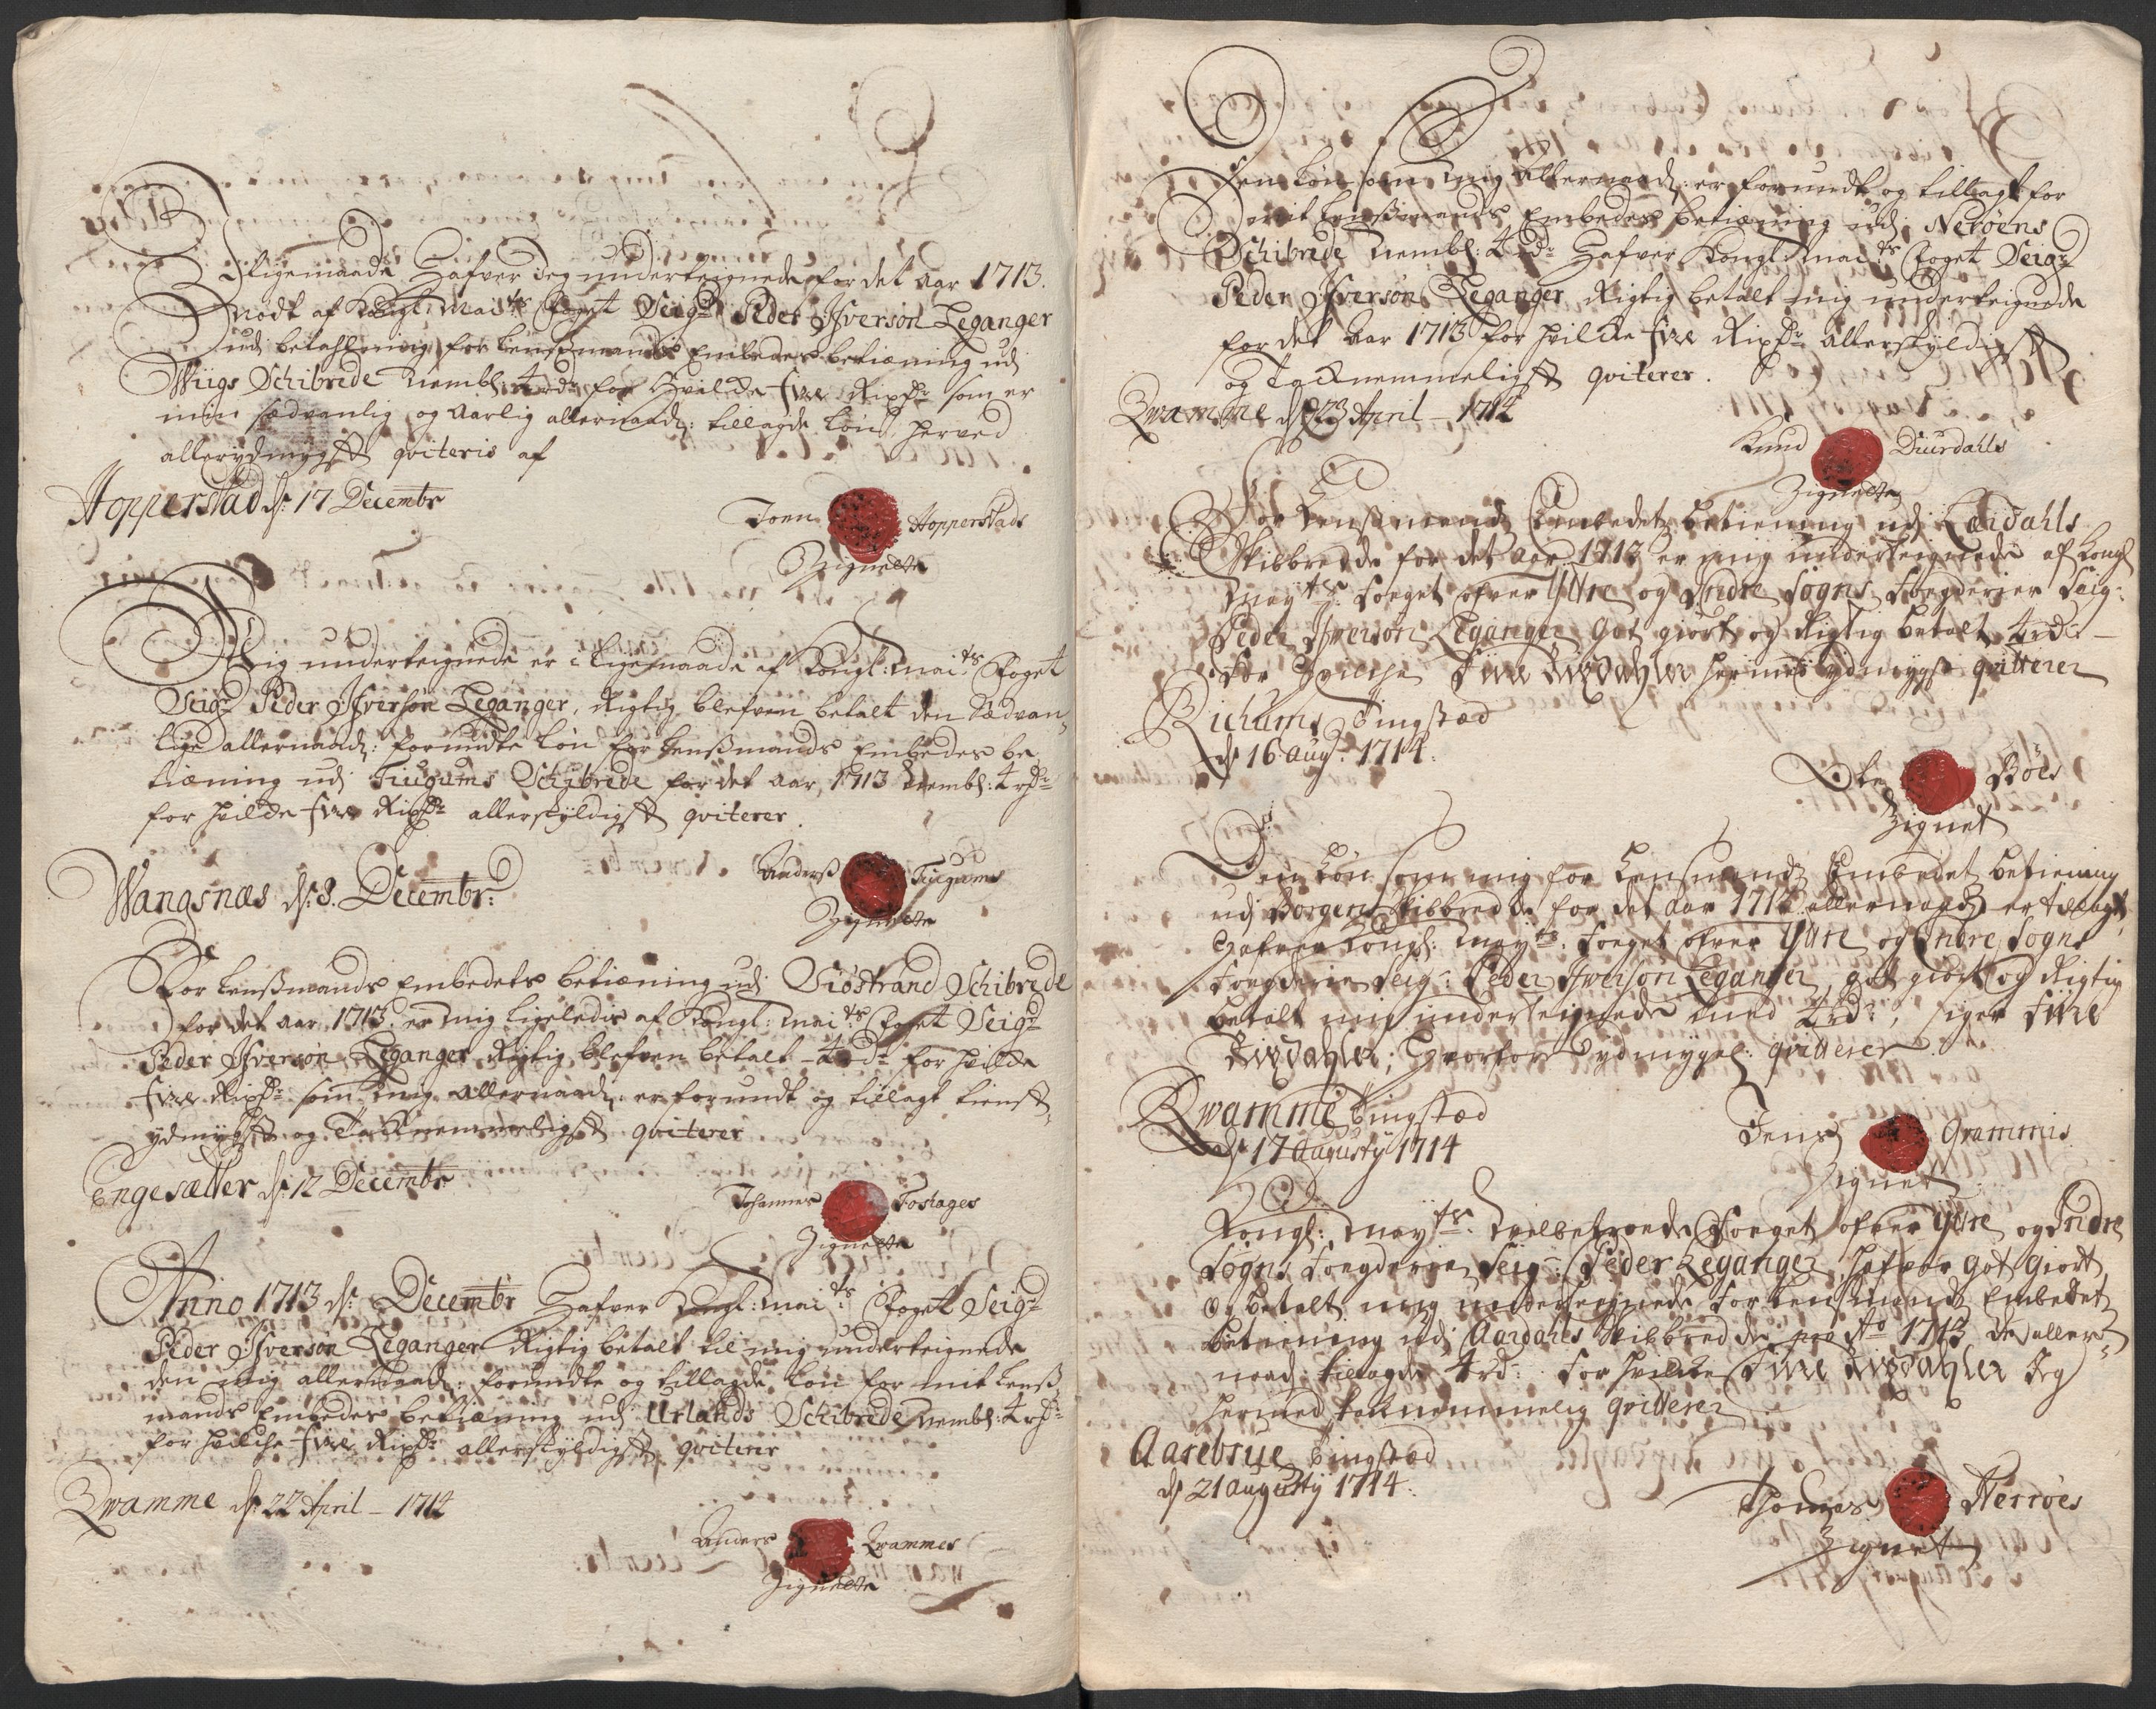 Ligemaade Hafver Jeg underteignede for det aar 1713.
nodt af Kongl: Mai.ts Foget Seigr Peder Jfverson Leganger
udj betahlning for Lenßmands Embedes betiæning udj
Wiigs Schibrede Nembl: 4 rdr for Hvilcke fire Rixdr som er
min sædvanlig og aarlig allernaad: tillagde Løn, herved
allerydmygst qviteris af
Hopperstad dr: 17 Decembr
Joen Hopperstads
Zignette
Mig underteignede er i ligemaade af Kongl: Mai.ts Foget
Seigr Peder Jfverson Leganger, Rigtig blefven betalt den Sædvan-
lige allernaad: forundte Løn for Lenßmands Embedes be
tiæning udj Tiugums Schibrede for det aar, 1713 Nembl: 4 rdr
for hvilcke fire Rixdr allerskyldigst qviterer.
Wangsnæs dr: 8. Decembr:
Anders Tiugums
Zignette
For Lenßmands Embedets betiæning udj Siøstrand Schibrede
for det aar 1713 er mig ligeledis af Kongl: Mai.ts Foget Seigr
Peder Jfverson Leganger Rigtig blefven betalt 4 rdr for hvilcke
fire Rixdr som mig allernaad: er forundt og tillagt tienst-
ydmygst og Tacknemmeligst qviterer
Engesætter dr: 12 Decembr
Johannes Fostages
Zignette
Anno 1713 dr: Decembr Hafver Kongl: Mai.ts Foget Seigr
Peder Jfverson Leganger Rigtig betalt til mig underteignede
den mig allernaad: forundte og tillagde Løn for mit Lenß
mands Embedes betiæning udj Urlands Schibrede Nembl: 4 rdr
for hvilche fire Rixdr allerskyldigst qviterer
Qvamme dr: 22 April - 1714
Anders Qvammes
Zignette
Den Løn som mig allernaad: er forundt og tillagt for
mit Lenßmands Embedes betiæning udj Nerøens
Schibrede Nembl: 4 rdr Hafver Kongl: Mai.ts Foget Seigr
Peder Jfverson Leganger Rigtig betalt mig underteignede
for det Aar 1713 for hvilcke fire Rixdr allerskyldigst
og Tacknemmeligst qviterer.
Qvamme dr: 23 April - 1714
Knud Diurdahls
Zignette
For Lensmands Embedets betiening udj Leirdahls
Skibbrede for det aar 1713 er mig underteignede af Kongl
May.ts Foeget ofver Yttre og Indre Sogns Foegderier Seig:
Peder Jfverson Leganger got giort og Rigtig betalt 4 rdr -
For Hvilche Fiire Rixdahler hermed ydmygst qvitterer
Richums Tingstæd
dr 16 Aug: 1714.
Ole Böes
Zignet
Den Løn som mig for Lensmands Embedet betiening
udj Borgens Skibbrede for det aar 1713 allernaad er tillagt,
Hafver Kongl: May.ts Foeget ofver Yttre og Indre Sogns
Foegderie Seig: Peder Jfverson Leganger, got giort og Rigtig
betalt mig underteignede med 4 rdr, siger Fiire
Rixdahler, Hvorfore ydmygel: qvitterer.
Qvamme Tingstæd
dr 17 Augusty 1714
Jens Grammis
Zignet
Kongl: May.ts Velbetroede Foeget ofver Yttre og Indre
Sogns Foegderier Seig: Peder Leganger, hafver got giort
og betalt mig underteignede for Lensmands Embedet
betiening udj Aardahls Skibbrede pro Ao 1713 de aller-
naad: tillagde 4 rdr. For hvilche Fiire Rixdahler Jeg
hermed taknemmelig qvitterer
Aarebrue Tingstæd
dr 21 Augusty 1714.
Thomas Nerröes
Zignet